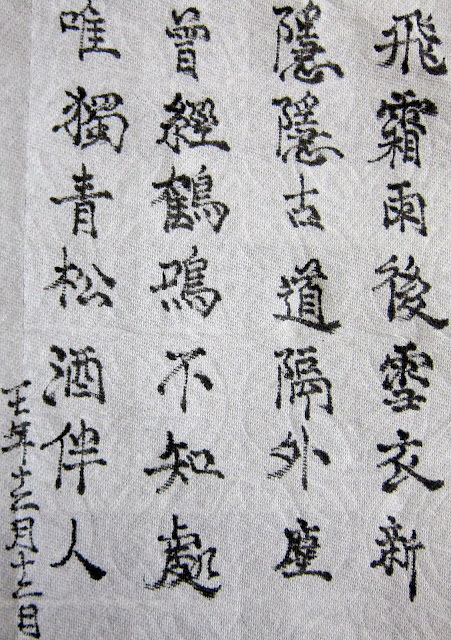 飛霜雨後雪衣新
隱隱古道隔外塵
曾經鶴鳴不知處
唯獨青松酒伴人
年十二月十二日